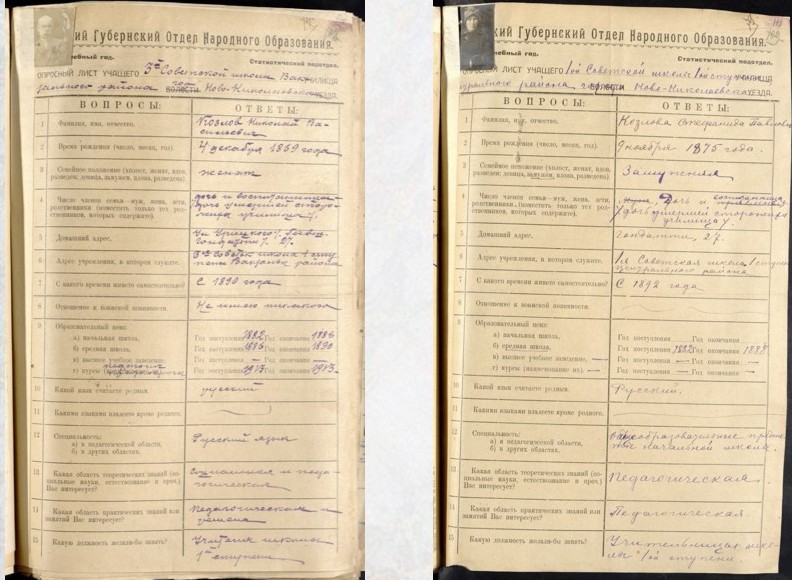 кий Губернский Отдел Народного Образования.
чебный год.
Статистический подотдел.
ОПРОСНЫЙ ЛИСТ УЧАЩЕГО 3й Советской школы Вак УЧИЛИЩА
района ВОЛОСТИ Ново-Николаевска УЕЗДА.
ВОПРОСЫ: ОТВЕТЫ:
1 Фамилия, имя, отчество. Козлов Николай Ва-
сильевич
2 Время рождения (число, месяц, год). 4 декабря 1869 года
3 Семейное положение (холост, женат, вдов, женат
разведен; девица, замужем, вдова, разведена).
4 Число членов семьи—муж, жена, дети, дочь и воспитанница
родственники (поместить только тех род- дочь умершей сторо-
ственников, которых содержите). жихи училища).
5 Домашний адрес. Гондатти), 27.
6 Адрес учреждения, в котором служите. 3я Советск школа 1 сту-
пени района
7 С какого времени живете самостоятельно? С 1890 года
8 Отношение к воинской повинности. Не
9 Образовательный ценз:
а) начальная школа, Год поступления 1882 Год окончания 1886
б) средняя школа, Год поступления 1886 Год окончания 1890
в) высшее учебное заведение, Год поступления — Год окончания —
г) курсы Год поступления 1913 Год окончания 1913.
10 Какой язык считаете родным. русский
11 Какими языками владеете кроме родного.
12 Специальность: Русский язык
а) в педагогической области,
б) в других областях.
13 Какая область теоретических знаний (со- Социальная и педа-
циальные науки, естествознание и проч.) гогическая
Вас интересует?
14 Какая область практических знаний или Педагогическая и
занятий Вас интересует?
15 Какую должность желали-бы занять? Учителя школы
1й ступени
кий Губернский Отдел Народного Образования.
чебный год.
Статистический подотдел.
ОПРОСНЫЙ ЛИСТ УЧАЩЕГО 1ой Советской школы 1ой ступ УЧИЛИЩА
района ВОЛОСТИ Ново-Николаевска УЕЗДА.
ВОПРОСЫ: ОТВЕТЫ:
1 Фамилия, имя, отчество. Козлова Стефанида Павловна
2 Время рождения (число, месяц, год). 9 ноября 1875 года.
3 Семейное положение (холост, женат, вдов, Замужняя
разведен; девица, замужем, вдова, разведена).
4 Число членов семьи—муж, жена, дети, Дочь и
родственники (поместить только тех род- (дочь умершей сторожихи
ственников, которых содержите). училища).
5 Домашний адрес. Гондатти, 27.
6 Адрес учреждения, в котором служите. 1я Советская школа 1 ступени
Центрального района
7 С какого времени живете самостоятельно? С 1892 года
8 Отношение к воинской повинности.
9 Образовательный ценз:
а) начальная школа, Год поступления Год окончания
б) средняя школа, Год поступления 1882 Год окончания 1888
в) высшее учебное заведение, — Год поступления — Год окончания —
г) курсы (наименование их) — Год поступления — Год окончания —
10 Какой язык считаете родным. Русский.
11 Какими языками владеете кроме родного.
12 Специальность: Общеобразовательные предме-
а) в педагогической области, ты начальной школы.
б) в других областях.
13 Какая область теоретических знаний (со- Педагогическая.
циальные науки, естествознание и проч.)
Вас интересует?
14 Какая область практических знаний или Педагогическая
занятий Вас интересует?
15 Какую должность желали-бы занять? Учительницы шко-
лы 1ой ступени.